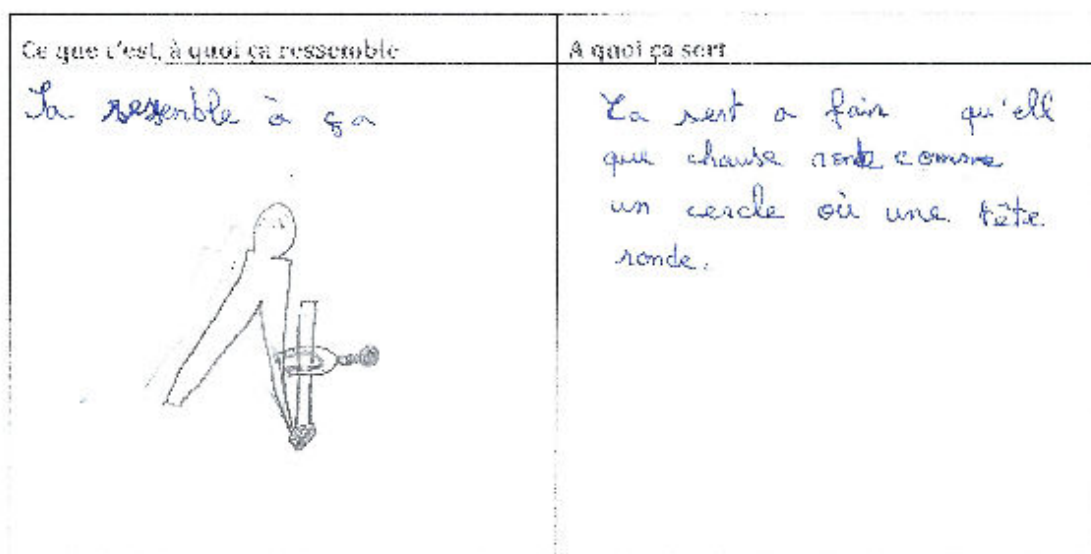 Ce que c'est, à quoi ça ressemble
A quoi ça sert
Sa ressenble à ça
Ça sert a fair qu'ell
que chause ronde comme
un cercle où une tête
ronde.